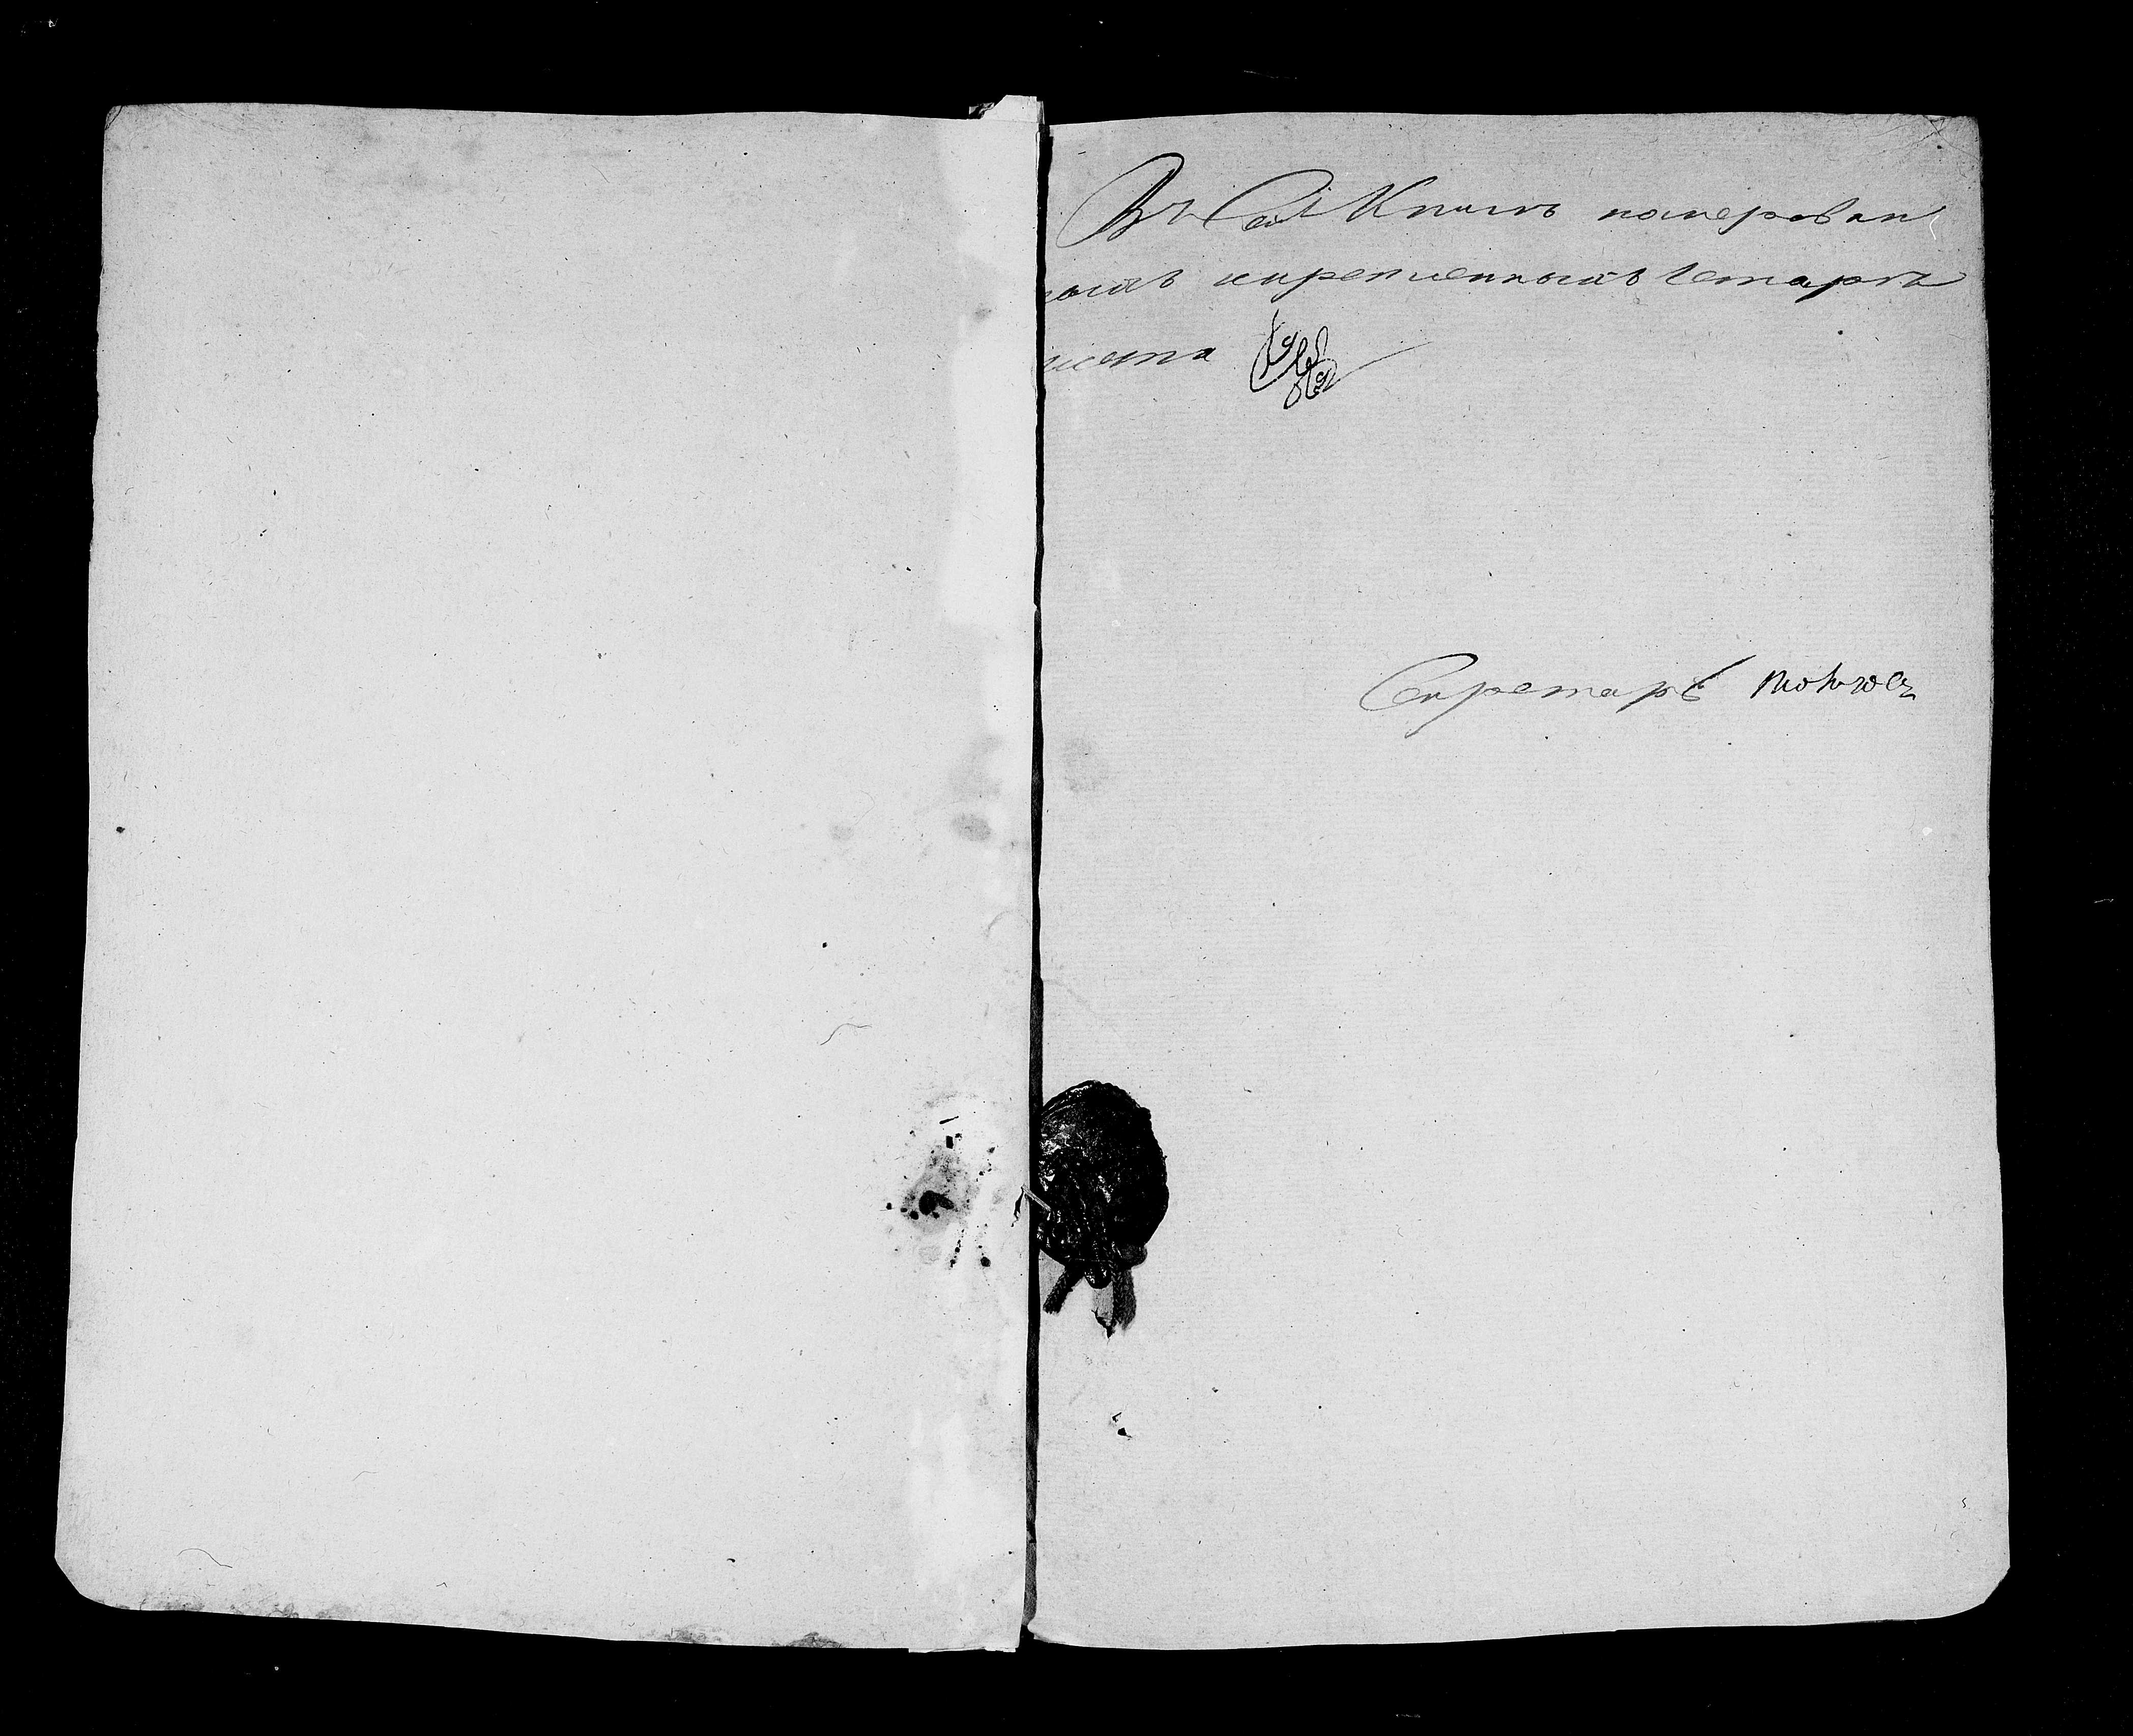 Въ сей Книгѣ номерован
ныхъ скрепленныхъ Четыре
листа
Секретарь